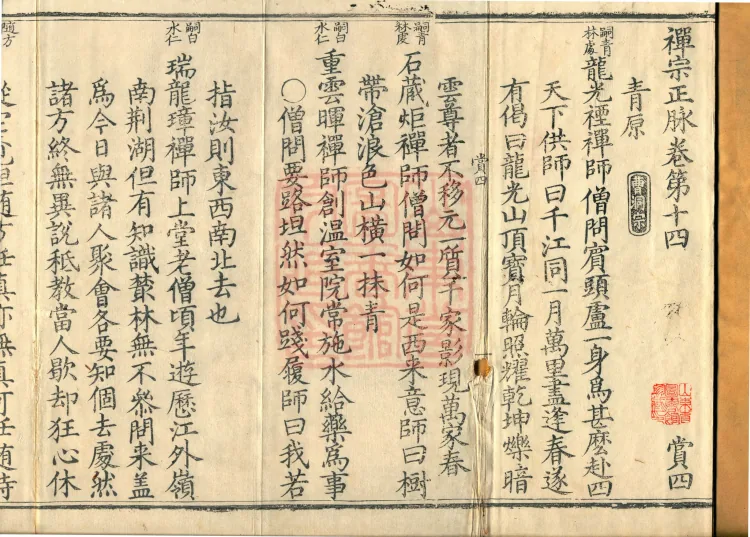 禪宗正脉卷第十四 賞四
青原 曹洞宗
嗣青林處 龍光禋禪師 僧問賓頭盧一身爲甚麽赴四
天下供師曰千江同一月萬里盡逢春遂
有偈曰龍光山頂寶月輪照耀乾坤爍暗
雲尊者不移元一質千家影現萬家春
賞四
嗣青林處 石藏炬禪師僧問如何是西来意師曰樹
帶滄浪色山橫一抹青
嗣白水仁 重雲暉禪師創温室院常施水給藥爲事
○僧問要路坦然如何踐履師曰我若
指汝則東西南北去也
嗣白水仁 瑞龍璋禪師上堂老僧頃年遊歷江外嶺
南荆湖但有知識藂林無不叅問来盖
爲今日與諸人聚會各要知個去處然
諸方終無異說秪教當人歇却狂心休